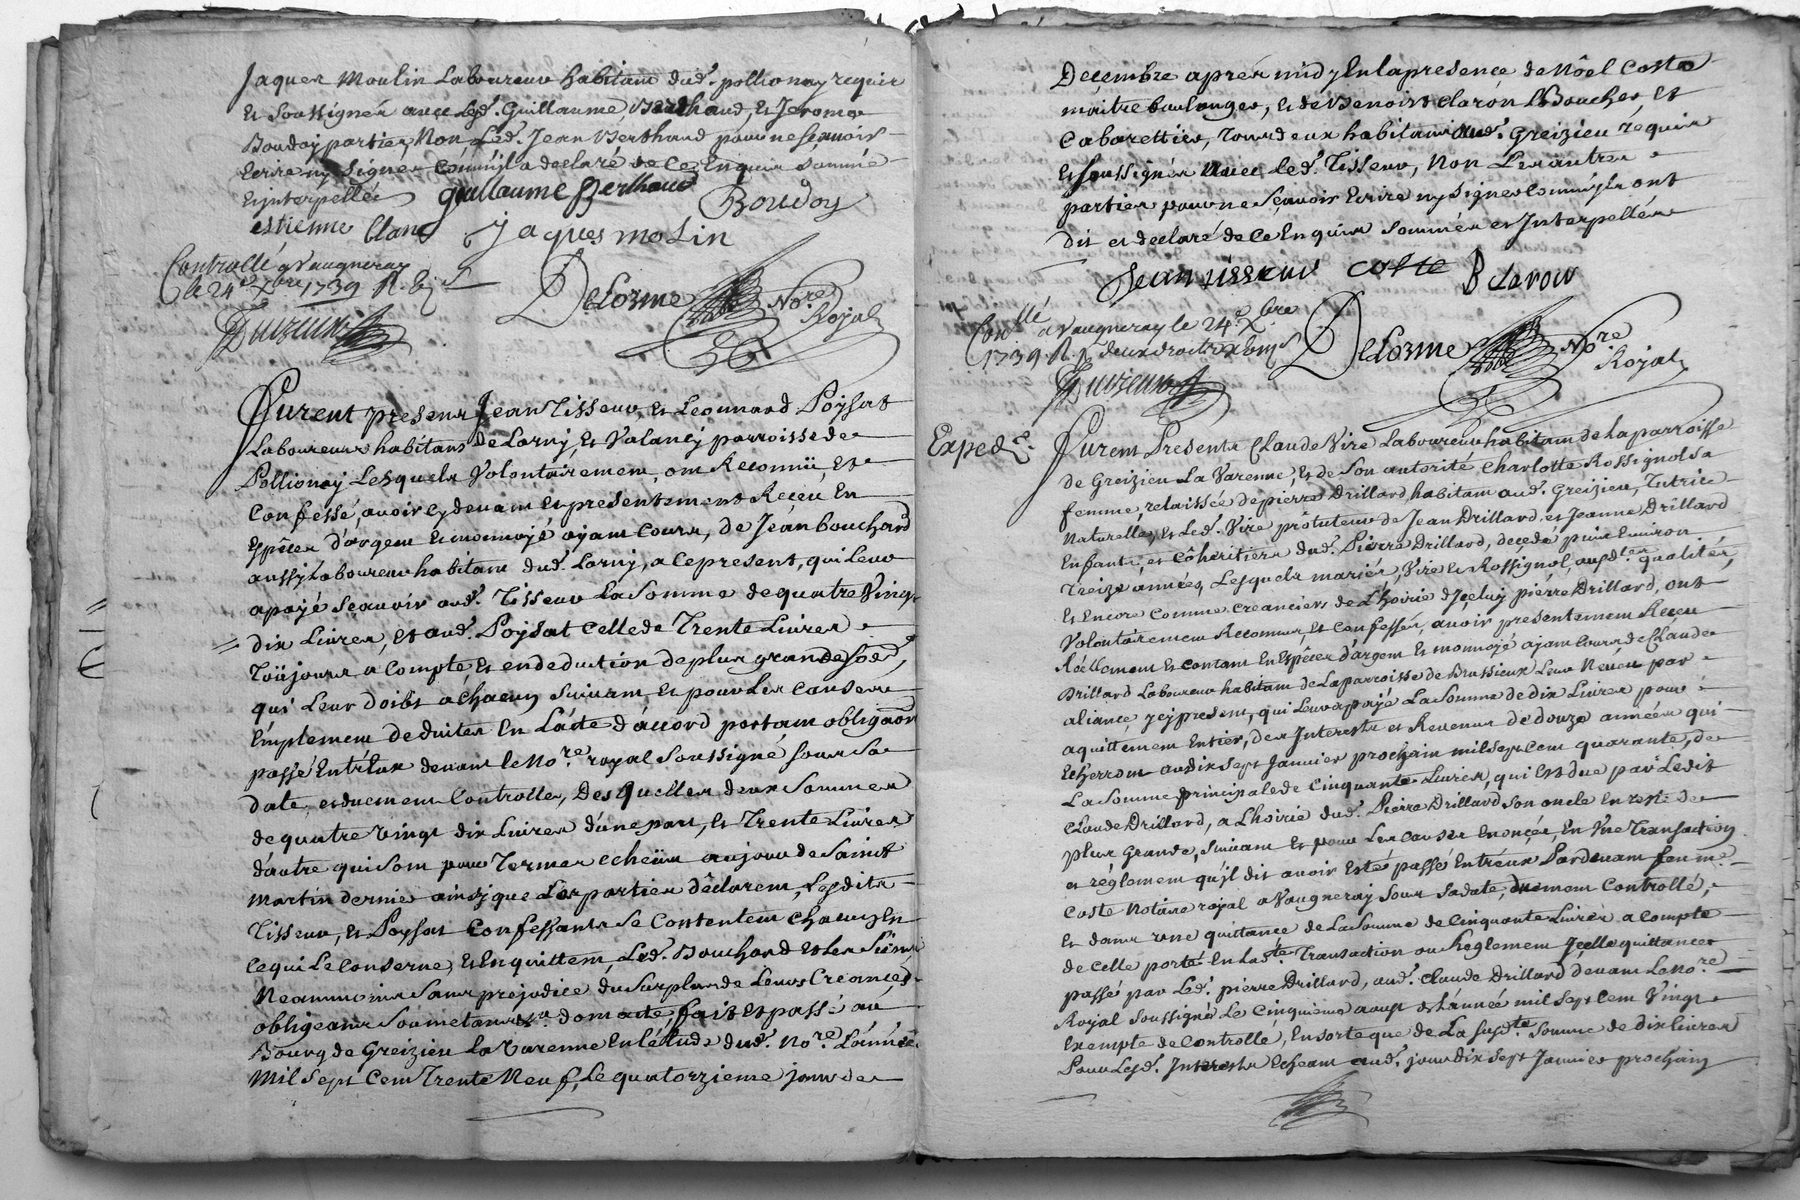 Jaques Moulin Laboureur habitant dud. pollionay requis
Et soussignés avec led. Guillaume Berthaud, et Jerome
Boudoy parties, Non Led. Jean Berthaud pour ne scavoir
Ecrire ny signer comm'jl a declaré de ce Enquis sommé
Et jnterpellé
guillaume Berthaud
Boudoy
estienne Clanc
jaques molin
Controllé a Vaugneray
le 24e xbre 1739 R.
Delorme Nore Royal
Furent presens Jean Tisseur, et Leonnard Poysat
Laboureurs habitans de Larny, et Valancy parroisse de
Pollionay Lesquels Volontairement, ont Reconnû, et
Confessé, avoir cy devant et presentement Receu, En
Espêces d'argent et monnoye ayant cours, de Jean bouchard
aussy Laboureur habitant dud. Larny, a ce present, qui Leur
a payé sçavoir aud. Tisseur La somme de quatre Vingt
dix Livres, et aud. Poysat celle de Trente Livres
Toûjours a compte et en deduction de plus grande so.e d.
qui Leur doibt a chacun suivant, et pour Les causes
Emplement deduites En L'acte d'accord portant obligaon
passé Entr'Eux devant le Nore. royal soussigné sous sa
date, et duement Controllé, Des quelles deux sommes
de quatre Vingt dix Livres d'une part, et Trente Livres
d'autre qui sont pour Termes echeüs au jour de saint
Martin dernier ainsy que Les parties déclarent, Lesdits
Tisseur, et Poysat Confessants se Contentent chacun En
ce qui Le Conserne, et En quittent, Led. Bouchard et Les siens
Neantmoins sans prejudice du surplus de Leurs Creances
obligeans soumetans &a. dont acte, fait et passé au
Bourg de Greizieu La Varenne En L'étude dud. Nore. L'année
Mil sept Cent Trente Neuf, Le quatorzieme jour de
Decembre aprés midy En la presence de Nôel Coste
maitre boulanger, et de Benoist Claron Boucher, et
Cabarettier, Tous deux habitants aud. Greizieu requis
Et soussignés Avec Led. Tisseur, Non Les autres
parties pour ne sçavoir Ecrire ny signer comm'jls ont
dit et declaré de ce Enquis sommés et Interpellés
Jean tisseur coste B claron
Conllé a Vaugneray le 24e xbre
1739. R.
Delorme Nore Royal
Exped.e
Furent Presents Claude Vire Laboureur habitant de la parroisse
de Greizieu La Varenne, et de son autorité Charlotte Rossignol sa
femme, relaissée de pierre Drillard habitant aud. Greizieu, Tutrice
Naturelle, et Led. Vire prôtuteur de Jean Drillard et Jeanne Drillard
Enfants, et côheritiers dud. Pierre Drillard, decedé puis Environ
Treize années, Lesquels mariés, Vire et Rossignol, ausd. qualités,
et Encore comme creanciers de L'hoirie d'Jceluy pierre Drillard, ont
Volontairement Reconnus, et Confessés, avoir presentement Receu
Réellement et contant En Espêces d'argent et monnoyé ayant cours de Claude
Drillard Laboureur habitant de La parroisse de Brussieux Leur Neveu par
aliance jcy present, qui Leur a payé La somme de dix Livres pour
aquittement Entier, des Interests et Revenus de douze années qui
Echerront au dix sept Janvier prochain mil sept cent quarante, de
La somme principale de Cinquante Livres, qui Est due par Ledit
Claude Drillard, a L'hoirie dud. Pierre Drillard son oncle En reste de
plus Grande, suivant et pour Les causes Enonçées, En Une Transaction
et réglement qu'jl dit avoir Esté passé Entreux Pardevant feu me
Coste Notaire royal a Vaugneray sous sa date, duement Controllé,
Et dans une quittance de La somme de Cinquante Livres a compte
de Celle porté En Lad.te Transaction ou Reglement Jcelle quittance
passé par Led. pierre Drillard, aud. Claude Drillard devant Le Nore
Royal soussigné Le Cinquieme aoust de L'année mil sept Cent Vingt
Exempte de Controlle, En sorte que de La susd.te somme de dix Livres
Pour Lesd. Interests Echeant aud. jour dix sept Janvier prochain